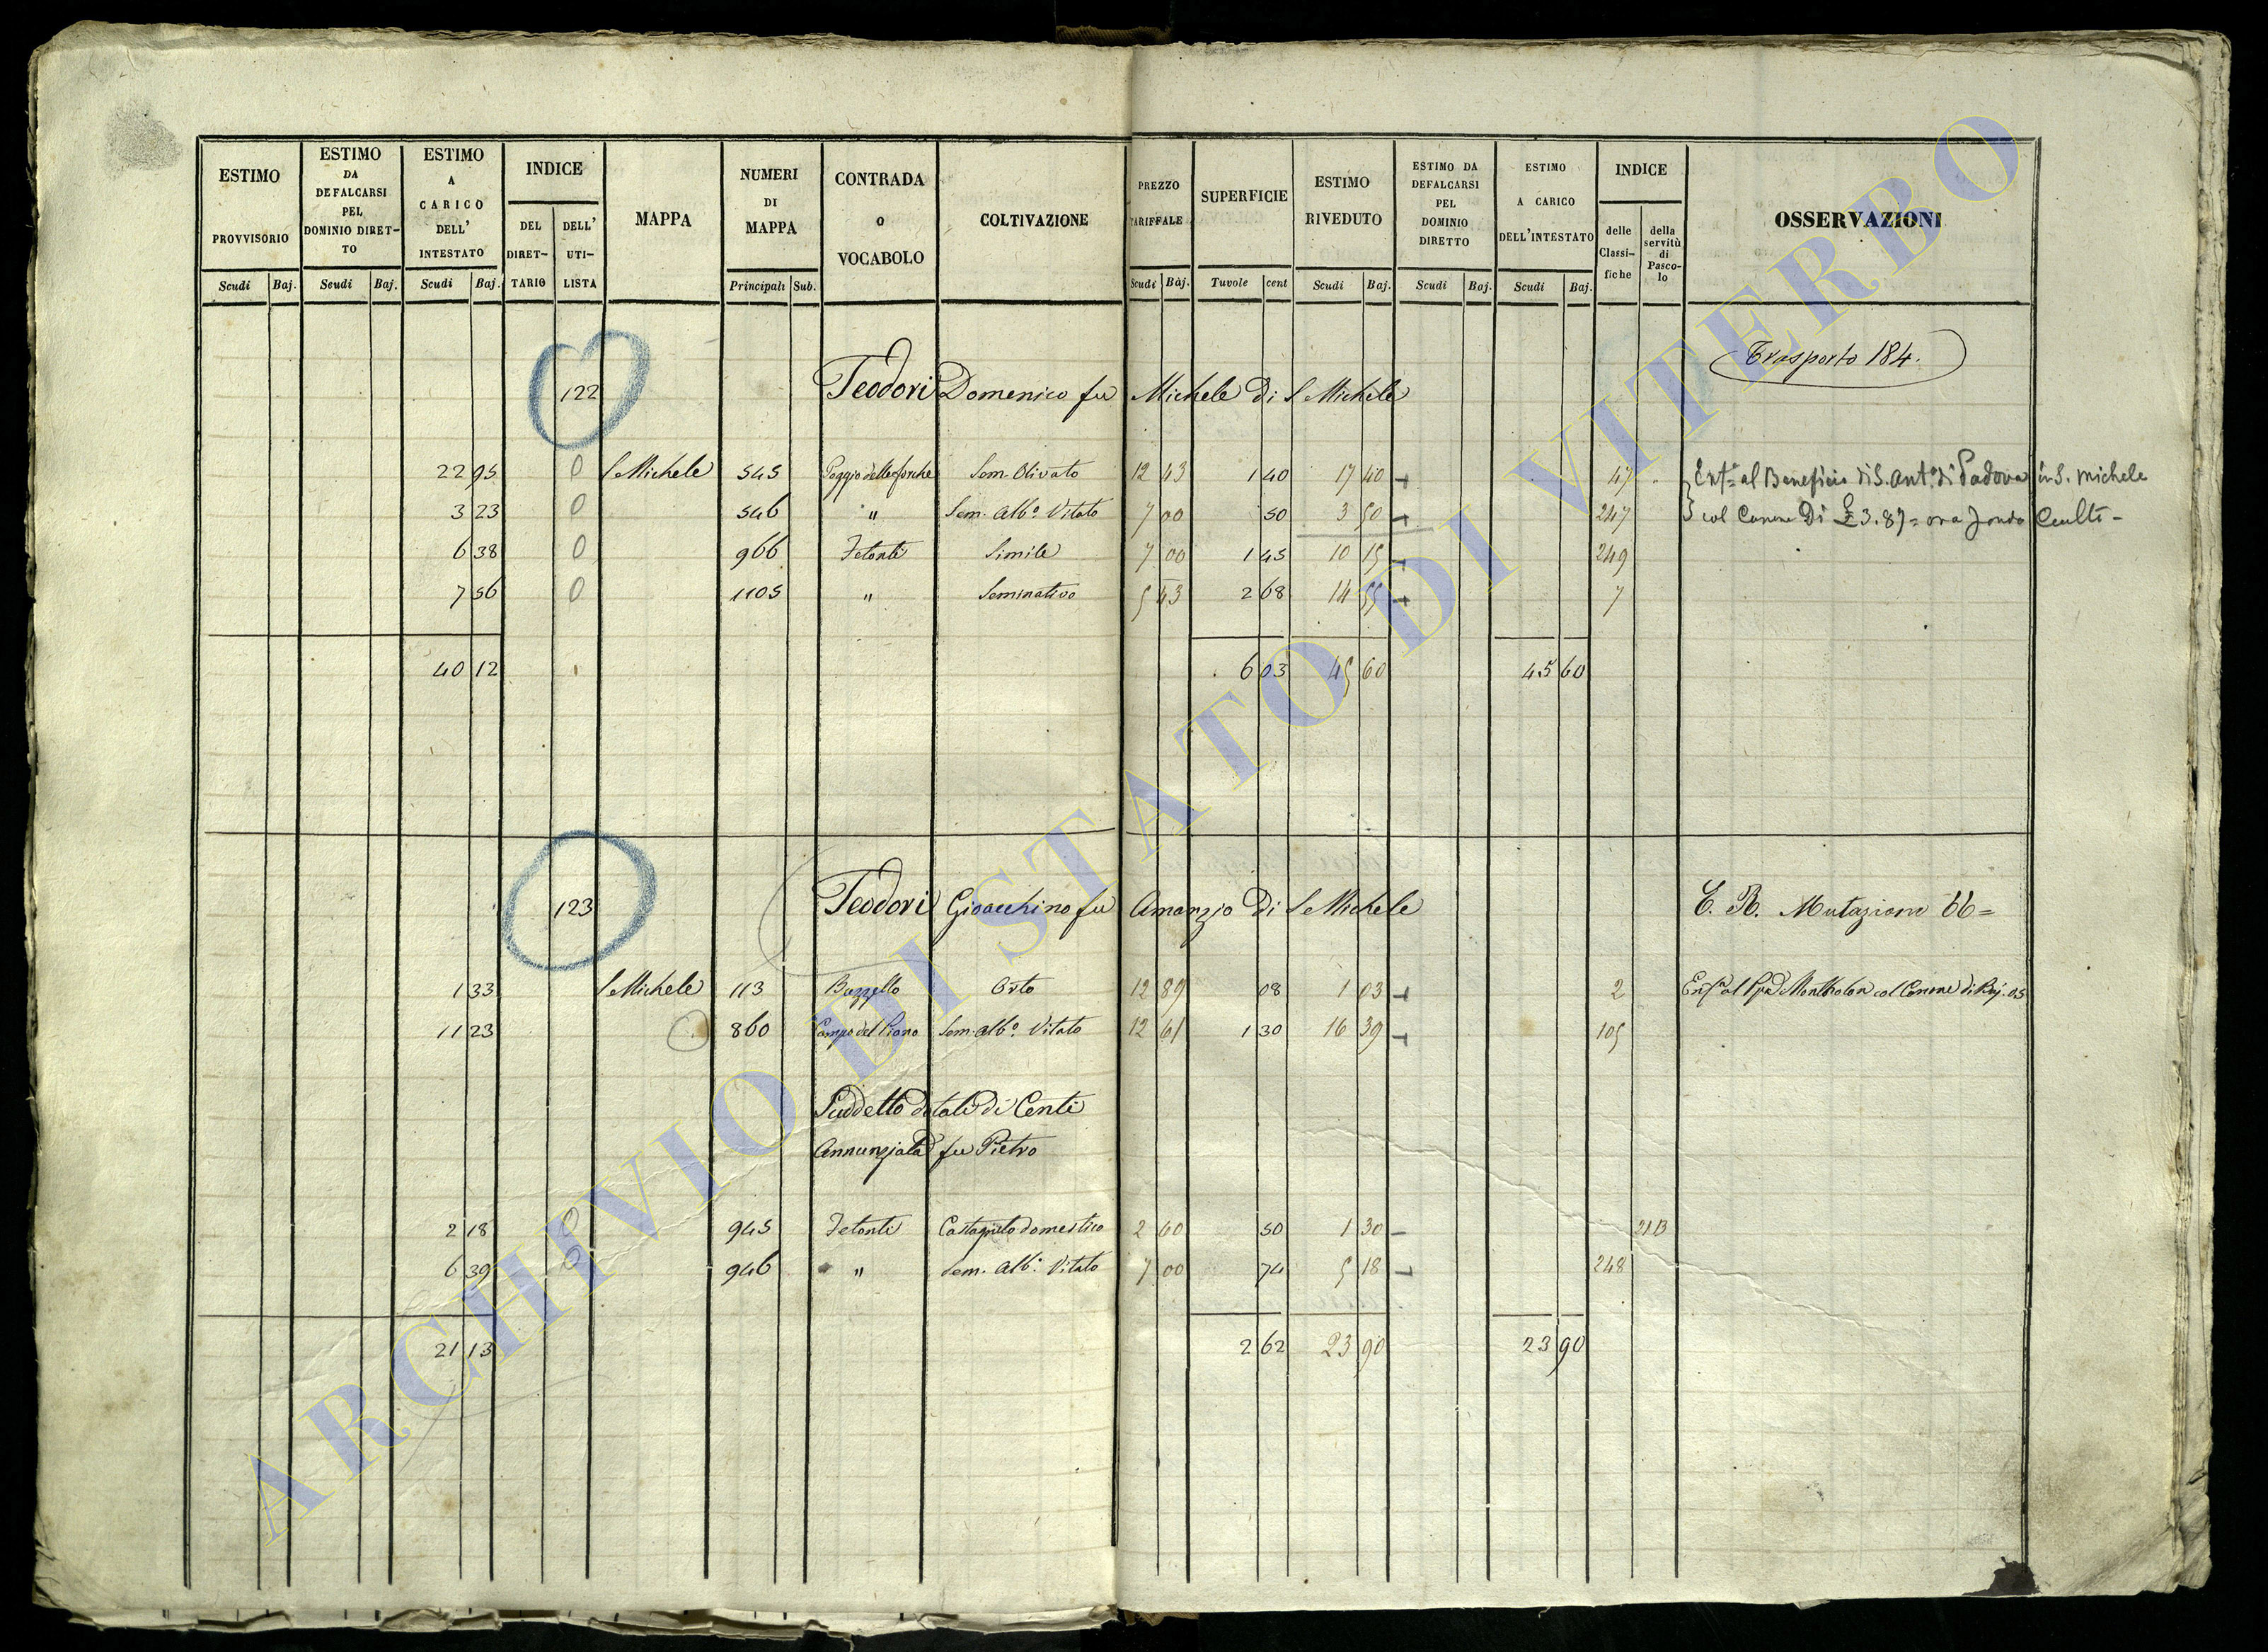 ESTIMO PROVVISORIO Scudi Baj.
ESTIMO DA DEFALCARSI PEL DOMINIO DIRET-TO Scudi Baj.
ESTIMO A CARICO DELL' INTESTATO Scudi Baj.
INDICE DEL DIRET-TARIO DELL' UTI-LISTA
MAPPA
NUMERI DI MAPPA Principali Sub.
CONTRADA O VOCABOLO
COLTIVAZIONE
PREZZO TARIFFALE Scudi Baj.
SUPERFICIE Tavole cent
ESTIMO RIVEDUTO Scudi Baj.
ESTIMO DA DEFALCARSI PEL DOMINIO DIRETTO Scudi Baj.
ESTIMO A CARICO DELL'INTESTATO Scudi Baj.
INDICE delle Classi-fiche della servitù di Pasco-lo
OSSERVAZIONI
Trasporto 184.
122 Teodori Domenico fu Michele di S Michele
22 95 0 S Michele 545 Poggio delle forche Sem. Olivato 12 43 1 40 17 40 47 Enf.a al Beneficio di S. Ant.o di Padova in S. Michele
3 23 0 546 " Sem. Alb.o Vitato 7 00 50 3 50 247 col Canone Di £ 3.87 = ora fondo Culti -
6 38 0 966 Fetonti Simile 7 00 1 45 10 15 249
7 56 0 1105 " Seminativo 5 43 2 68 14 55 7
40 12 6 03 45 60 45 60
123 Teodori Gioacchino fu Amanzio Di S Michele E. R. Mutazione 66=
1 33 S Michele 113 Buzzello Orto 12 89 08 1 03 2 col Canone di Baj. 05
11 23 860 Campo del Piano Sem. alb.o Vitato 12 61 1 30 16 39 105
Suddetto dotali di Centi
Annunziata fu Pietro
2 18 0 945 Fetonti Castagneto domestico 2 60 50 1 30 21B
6 39 0 946 " Sem. Alb.o Vitato 7 00 74 5 18 248
21 13 2 62 23 90 23 90
ARCHIVIO DI STATO DI VITERBO